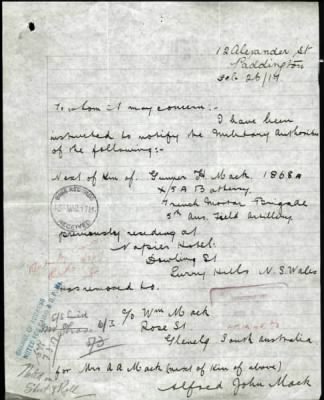 12 Alexander St
Paddington
Feb 26/17
To whom it may concern:-
I have been
instructed to notify the Military Authorities
of the following:-
Next of Kin of. Gunner H Mack. 1868A
X5A Battery
Trench Mortar Brigade
5th Aus. Field Artillery
previously residing at
Napier Hotel.
Dowling St
Surry Hills N.S. Wales
Has removed to.
c/o Wm Mack
Rose St
Glenelg South Australia
for Mrs A A Mack (next of Kin of above)
Alfred John Mack
RECEIVED